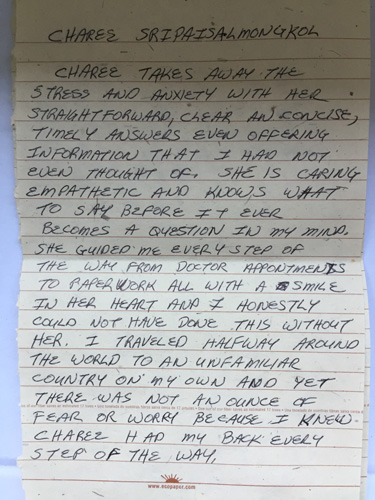 CHAREE SRIPAISALMONGKOL
CHAREE TAKES AWAY THE
STRESS AND ANXIETY WITH HER
STRAIGHTFORWARD, CLEAR AN CONCISE,
TIMELY ANSWERS EVEN OFFERING
INFORMATION THAT I HAD NOT
EVEN THOUGHT OF. SHE IS CARING
EMPATHETIC AND KNOWS WHAT
TO SAY BEFORE IT EVER
BECOMES A QUESTION IN MY MIND.
SHE GUIDED ME EVERY STEP OF
THE WAY FROM DOCTOR APPOINTMENTS
TO PAPERWORK ALL WITH A SMILE
IN HER HEART AND I HONESTLY
COULD NOT HAVE DONE THIS WITHOUT
HER. I TRAVELED HALFWAY AROUND
THE WORLD TO AN UNFAMILIAR
COUNTRY ON MY OWN AND YET
THERE WAS NOT AN OUNCE OF
FEAR OR WORRY BECAUSE I KNEW
CHAREE HAD MY BACK EVERY
STEP OF THE WAY.